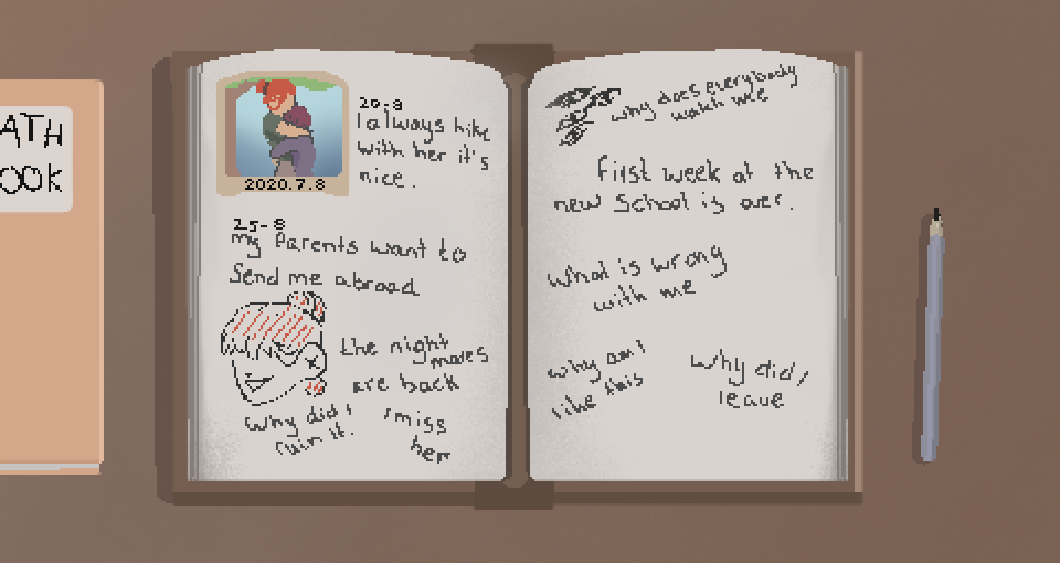 ATH
OOK
2020.7.8
20-8
I always hike
with her it's
nice.
25-8
my Parents want to
Send me abroad
the night
mares
are back
why did i
ruin it.
i miss
her
why does everybody
watch me
first week at the
new School is over.
What is wrong
with me
why am i
like this
why did i
leave